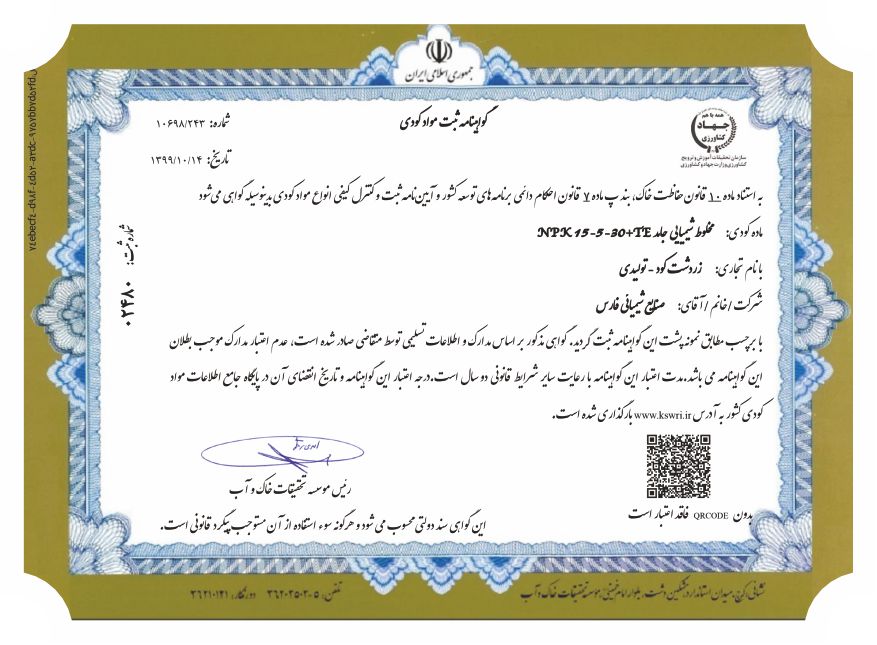 جمهوری اسلامی ایران
گواهینامه ثبت مواد کودی
شماره: ۱۰۶۹۸/۲۴۳
تاریخ: ۱۳۹۹/۱۰/۱۴
همه با هم
جهاد
کشاورزی
سازمان تحقیقات آموزش و ترویج
کشاورزی وزارت جهاد کشاورزی
به استناد ماده ۱۰ قانون حفاظت خاک، بند پ ماده ۷ قانون احکام دائمی برنامه های توسعه کشور و آیین نامه ثبت و کنترل کیفی انواع مواد کودی بدینوسیله گواهی می شود
ماده کودی: مخلوط شیمیایی جامد NPK 15-5-30+TE
با نام تجاری: زردشت کود - تولیدی
شرکت / خانم / آقای: صنایع شیمیائی فارس
شماره ثبت: ۰۲۴۸۰
با برچسب مطابق نمونه پشت این گواهینامه ثبت گردید. گواهی مذکور بر اساس مدارک و اطلاعات تسلیمی توسط متقاضی صادر شده است، عدم اعتبار مدارک موجب بطلان
این گواهینامه می باشد. مدت اعتبار این گواهینامه با رعایت سایر شرایط قانونی دو سال است. درجه اعتبار این گواهینامه و تاریخ انقضای آن در پایگاه جامع اطلاعات مواد
کودی کشور به آدرس www.kswri.ir بارگذاری شده است.
رئیس موسسه تحقیقات خاک و آب
بدون QRCODE فاقد اعتبار است
این گواهی سند دولتی محسوب می شود و هرگونه سوء استفاده از آن مستوجب پیگرد قانونی است.
نشانی: کرج، میدان استاندارد، مشکین دشت، بلوار امام خمینی، موسسه تحقیقات خاک و آب
تلفن: ۵-۳۶۲۰۲۵۰۲ دورنگار: ۳۶۲۱۰۱۲۱